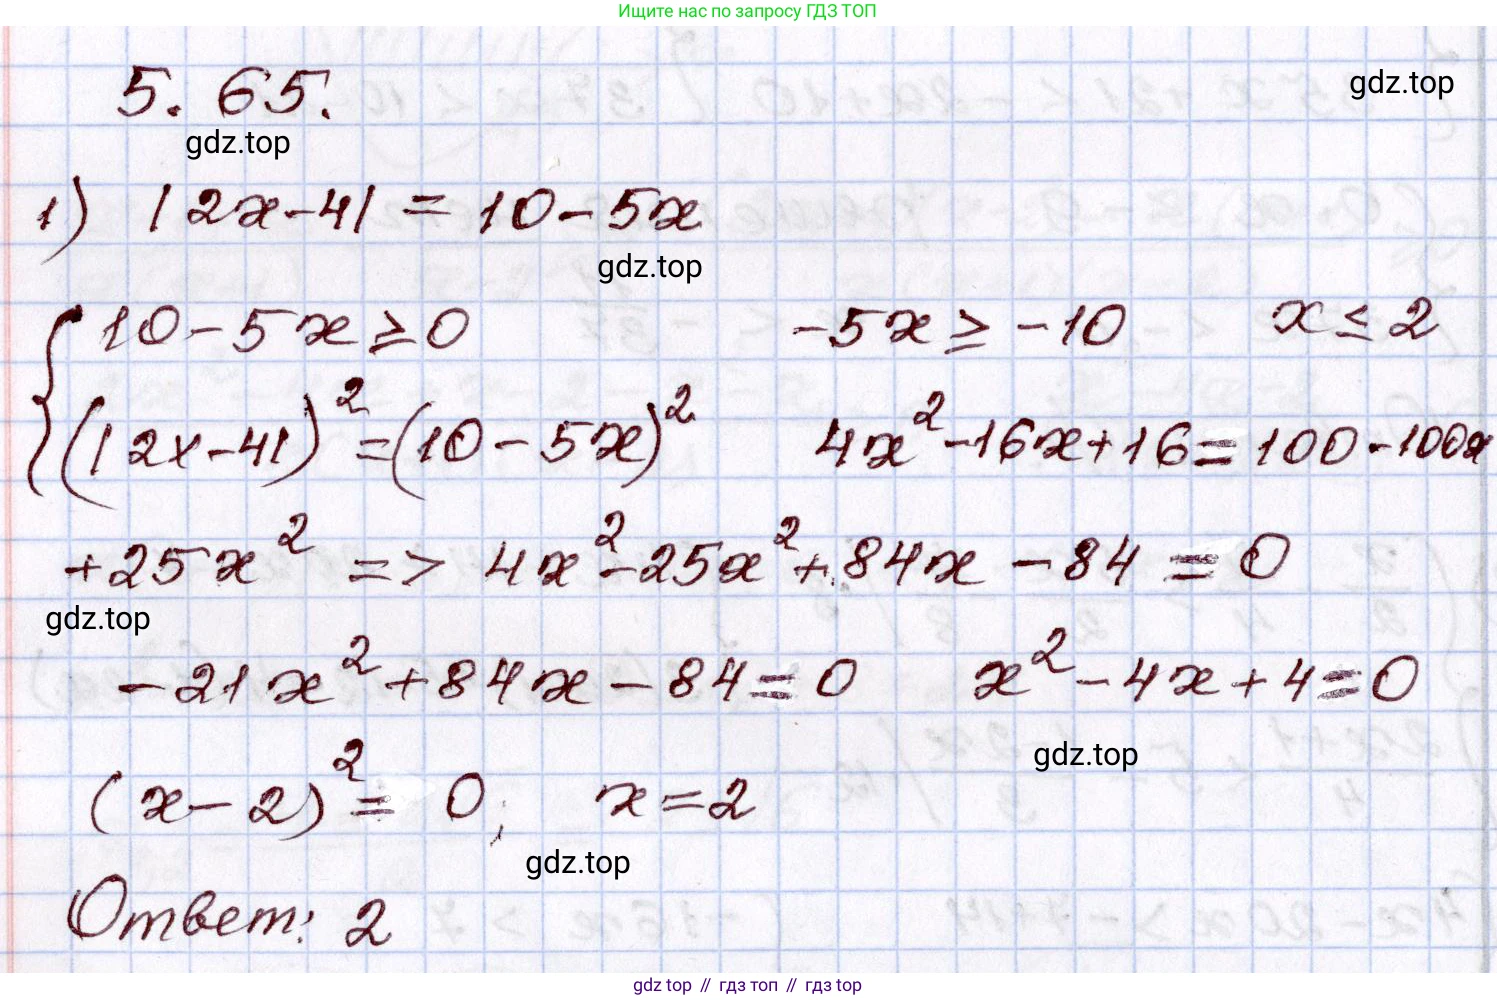 Ищите нас по запросу ГДЗ ТОП
5. 65.
gdz.top
gdz.top
1) |2x-4| = 10-5x
gdz.top
{ 10-5x ≥ 0 -5x ≥ -10 x ≤ 2
(|2x-4|)² = (10-5x)² 4x²-16x+16 = 100-100x
+25x² => 4x²-25x²+84x-84 = 0
gdz.top
-21x²+84x-84=0 x²-4x+4=0
gdz.top
(x-2)² = 0; x=2
gdz.top
Ответ: 2
gdz top // гдз топ // гдз top